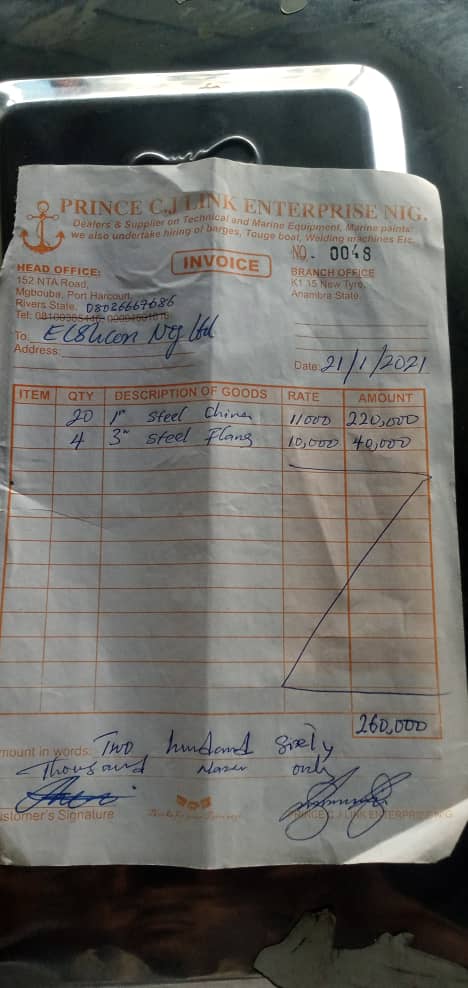 PRINCE C.J LINK ENTERPRISE NIG.
Dealers & Supplier on Technical and Marine Equipment, Marine paints
we also undertake hiring of barges, Touge boat, Welding machines Etc.
INVOICE
NO. 0048
HEAD OFFICE:
152 NTA Road,
Mgbouba, Port Harcourt,
Rivers State. 08026667686
Tel:
BRANCH OFFICE
K1 15 New Tyre,
Anambra State.
To: Nig Ltd
Address:
Date: 21/1/2021
ITEM QTY DESCRIPTION OF GOODS RATE AMOUNT
20 1" Steel China 11000 220,000
4 3" Steel Flang 10,000 40,000
260,000
mount in words: Two hundand Sixty
Thousand Naira only
ustomer's Signature
PRINCE C.J LINK ENTERPRISE NIG